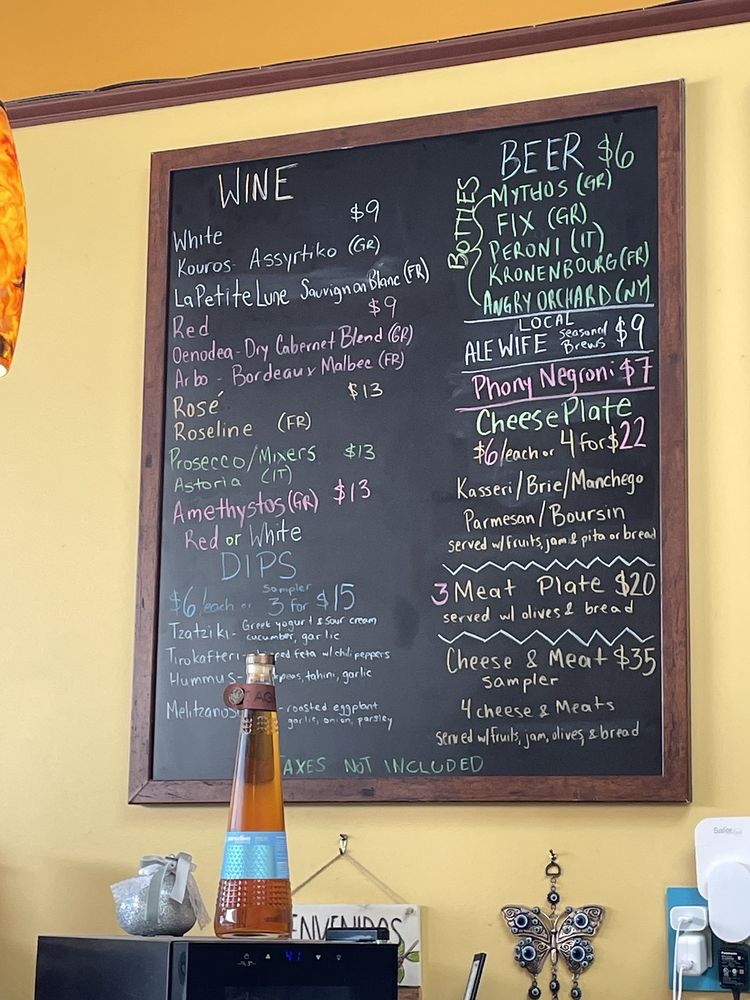 WINE
White $9
Kouros- Assyrtiko (GR)
La Petite Lune Sauvignon Blanc (FR)
Red $9
Oenodea - Dry Cabernet Blend (GR)
Arbo - Bordeaux Malbec (FR)
Rosé $13
Roseline (FR)
Prosecco/Mixers $13
Astoria (IT)
Amethystos (GR) $13
Red or White
DIPS
$6/each or Sampler 3 for $15
Tzatziki - Greek yogurt & sour cream
cucumber, garlic
Tirokafteri feta w/ chili peppers
Hummus - tahini, garlic
- roasted eggplant
garlic, onion, parsley
BEER $6
BOTTLES
MYTHOS (GR)
FIX (GR)
PERONI (IT)
KRONENBOURG (FR)
ANGRY ORCHARD (NY)
LOCAL
ALEWIFE Seasonal Brews $9
Phony Negroni $7
Cheese Plate
$6/each or 4 for $22
Kasseri/Brie/Manchego
Parmesan/Boursin
served w/fruits, jam & pita or bread
3 Meat Plate $20
served w/ olives & bread
Cheese & Meat $35
sampler
4 cheese & Meats
served w/fruits, jam, olives, & bread
TAXES NOT INCLUDED
41
Safer
Panasonic